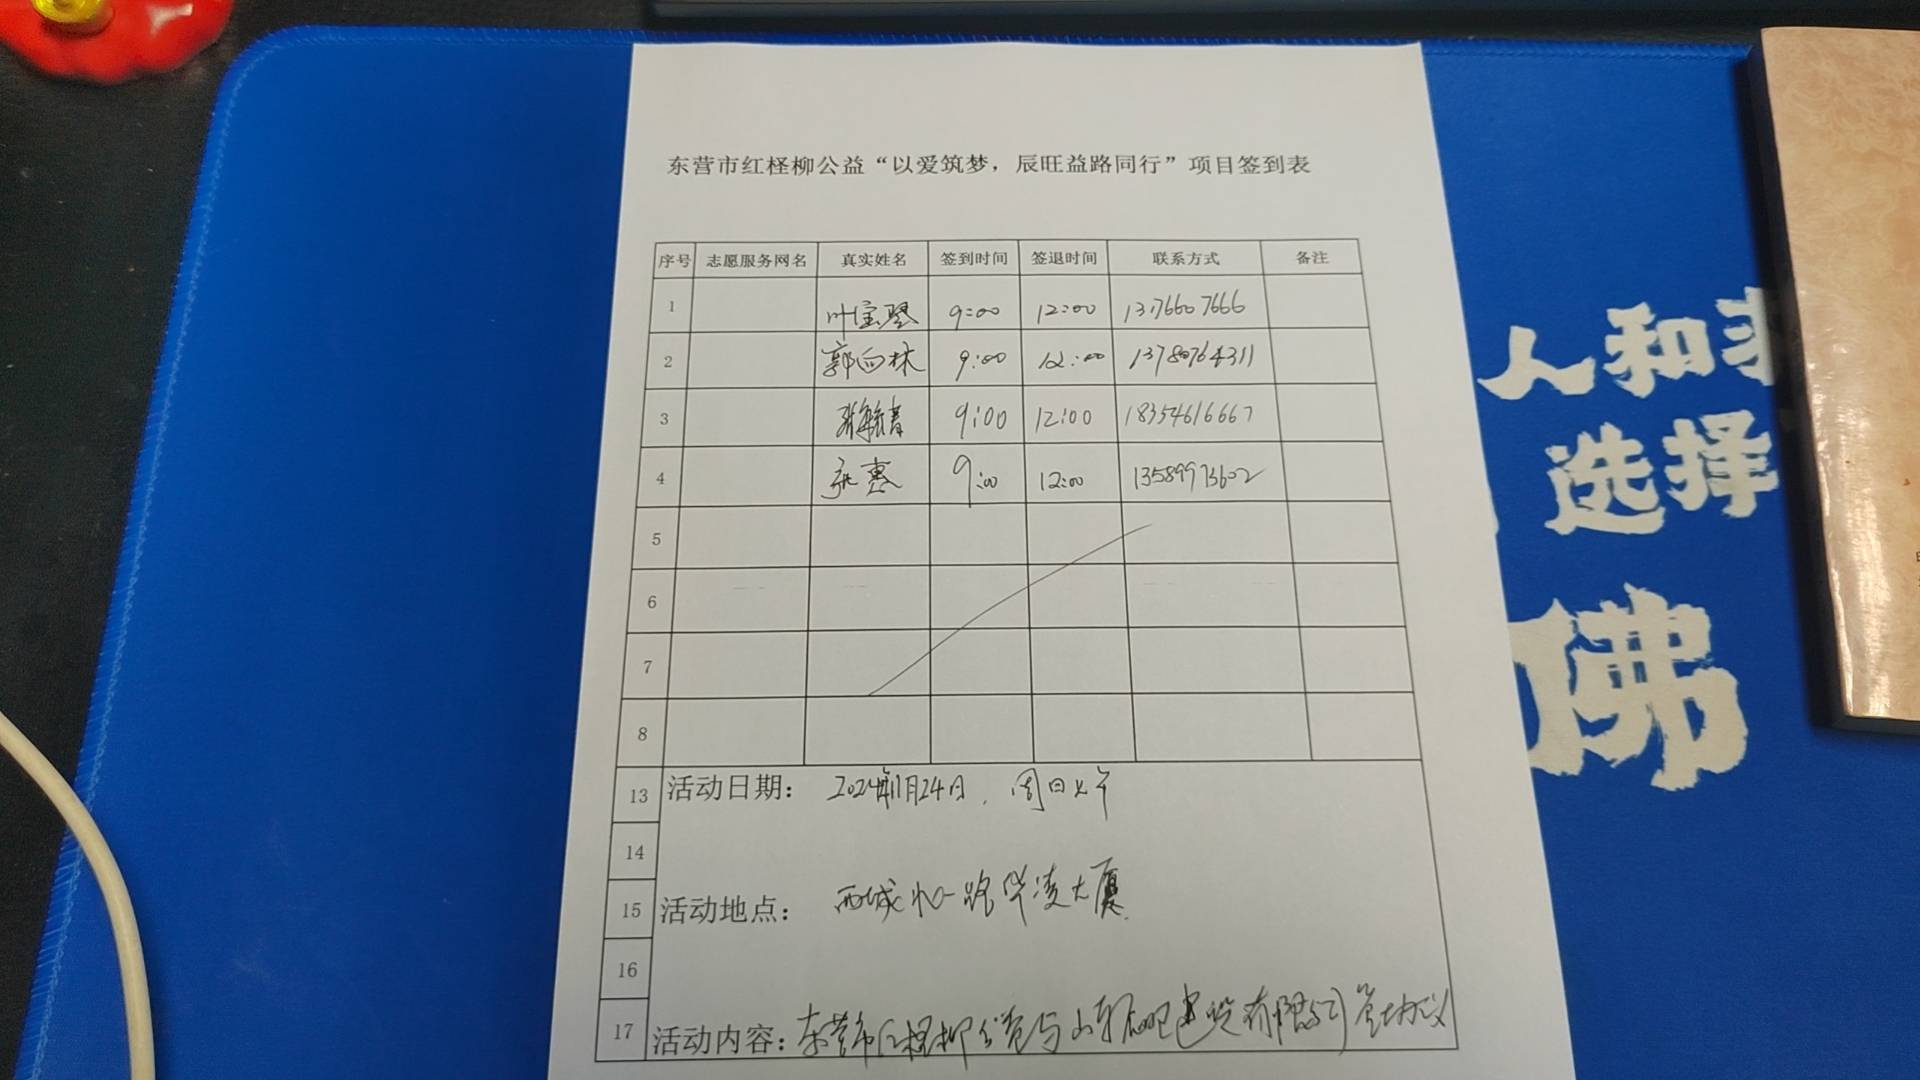 东营市红柽柳公益“以爱筑梦，辰旺益路同行”项目签到表
序号 志愿服务网名 真实姓名 签到时间 签退时间 联系方式 备注
1 叶宝琴 9:00 12:00 13176607666
2 郭向林 9:00 12:00 13780764311
3 9:00 12:00 18354616667
4 张惠 9:00 12:00 13589973602
5
6
7
8
13 活动日期： 2024年11月24日，周日上午
14
15 活动地点： 西城 路华凌大厦
16
17 活动内容：东营市红柽柳公益与山东辰旺建设有限公司签协议
人和
选择
佛